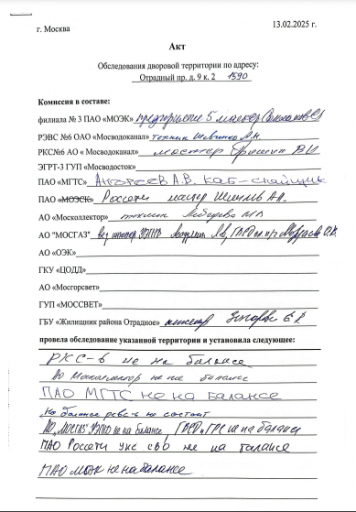 г. Москва 13.02.2025 г.
Акт
Обследования дворовой территории по адресу:
Отрадный пр. д. 9 к. 2 1590
Комиссия в составе:
филиала № 3 ПАО «МОЭК» предприятие 5 мастер
РЭВС №6 ОАО «Мосводоканал» техник
РКС№6 АО « Мосводоканал» мастер
ЭГРТ-3 ГУП «Мосводосток»
ПАО «МГТС» А.В. каб-спайщик
ПАО «МОЭСК» Россети мастер
АО «Москоллектор» техник
АО "МОСГАЗ"
АО «ОЭК»
ГКУ «ЦОДД»
АО «Мосгорсвет»
ГУП «МОССВЕТ»
ГБУ «Жилищник района Отрадное» инженер
провела обследование указанной территории и установила следующее:
РКС-6 не на балансе
АО Москоллектор не на балансе
ПАО МГТС не на балансе
на балансе рэвс-6 не состоит
не на балансе, не на балансе
ПАО Россети укс сво не на балансе
ПАО МОЭК не на балансе